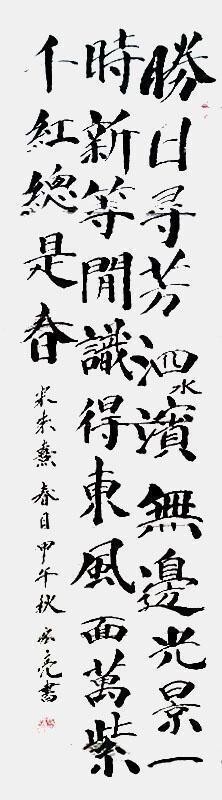 勝日尋芳泗水濱無邊光景一
時新等閒識得東風面萬紫
千紅總是春
宋朱熹春日甲午秋家亮書